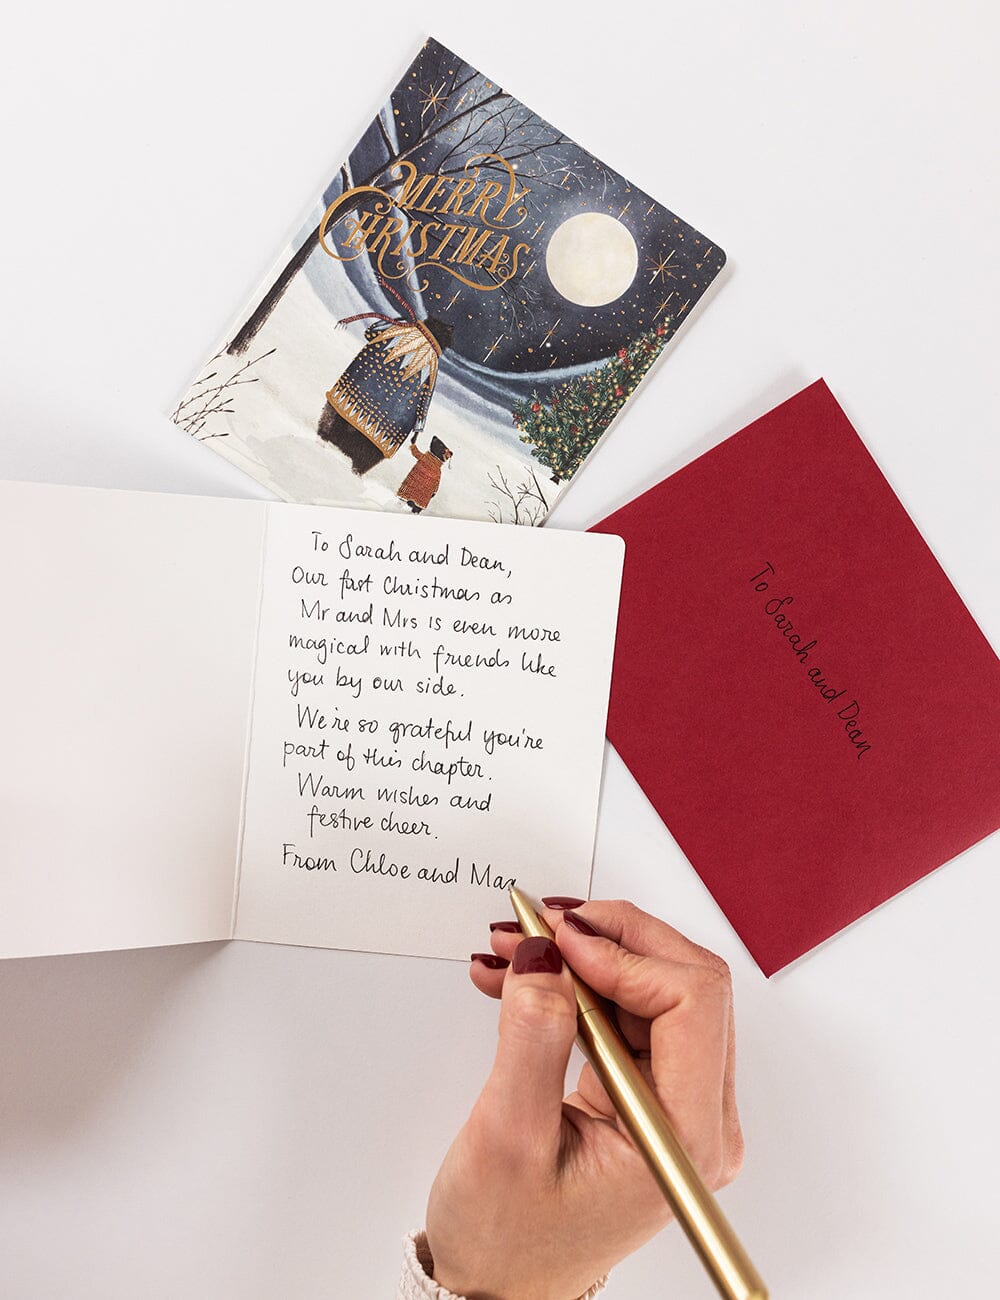 MERRY
CHRISTMAS
To Sarah and Dean,
Our first Christmas as
Mr and Mrs is even more
magical with friends like
you by our side.
We're so grateful you're
part of this chapter.
Warm wishes and
festive cheer.
From Chloe and
To Sarah and Dean